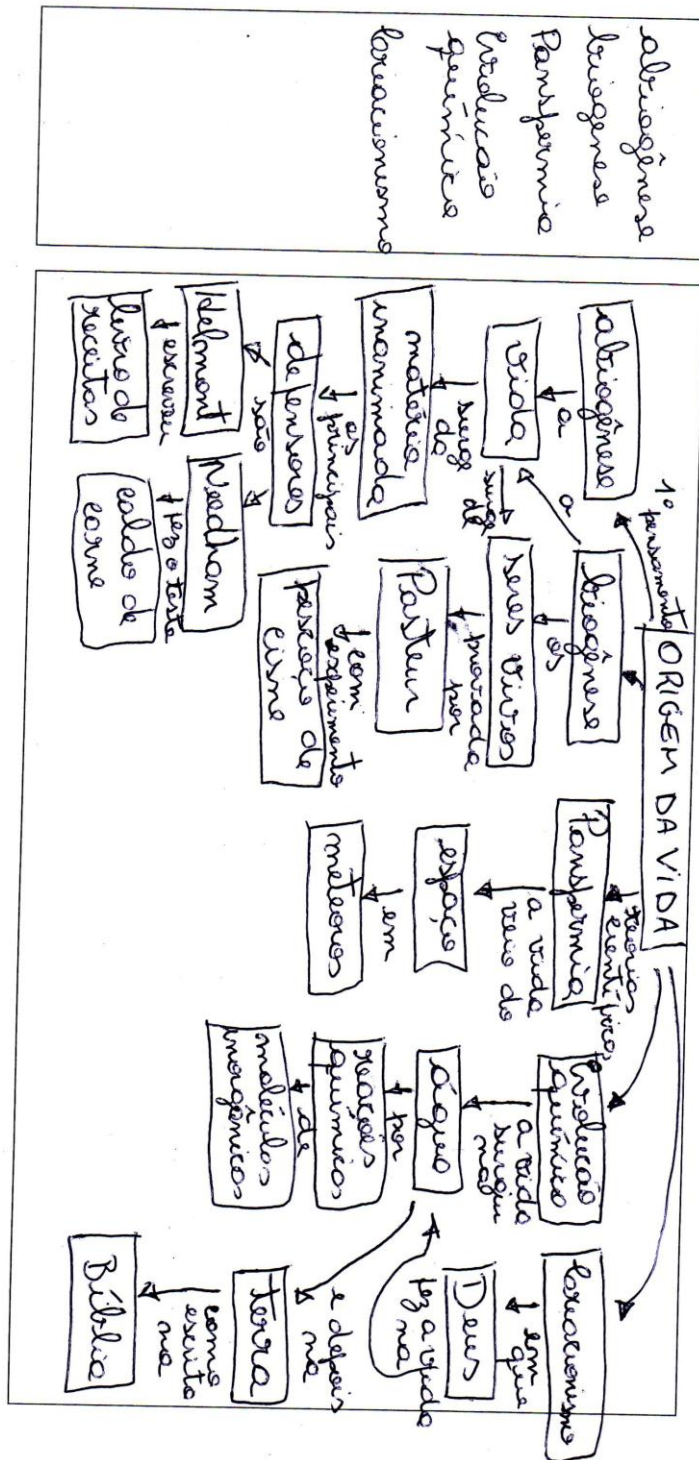 abiogênese
biogênese
Panspermia
Evolução
química
Criacionismo
ORIGEM DA VIDA
1º pensamento
abiogênese
a
vida
surge da
matéria
inanimada
os
principais
defensores
são
Helmont
escreveu
livro de
receitas
Needham
fez o teste
caldo de
carne
biogênese
a
surge
de
os
seres vivos
provada
por
Pasteur
com
experimento
pescoço de
cisne
teorias
científicas
Panspermia
a vida
veio do
espaço
em
meteoros
Evolução
química
a vida
surgiu
na
água
por
reações
químicas
de
moléculas
inorgânicas
Criacionismo
em que
Deus
fez a vida
na
e depois
na
terra
como
escrito
na
Bíblia